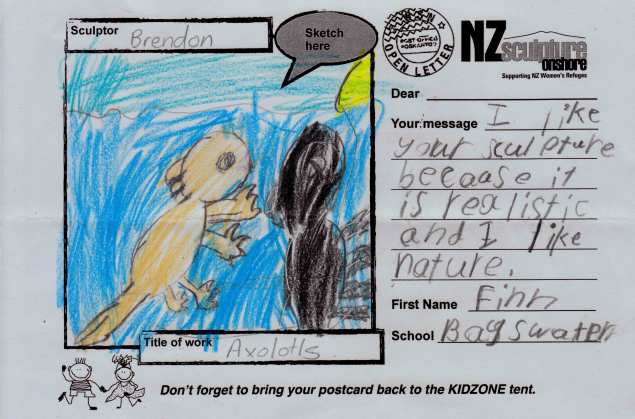 Sculptor Brendon
Sketch
here
POST OFFICE
OPEN LETTER
NZ sculpture
onshore
Supporting NZ Women's Refuges
Dear
Your message I like
your sculpture
because it
is realistic
and I like
nature.
First Name Finn
School Bayswater
Title of work Axolotls
Don't forget to bring your postcard back to the KIDZONE tent.